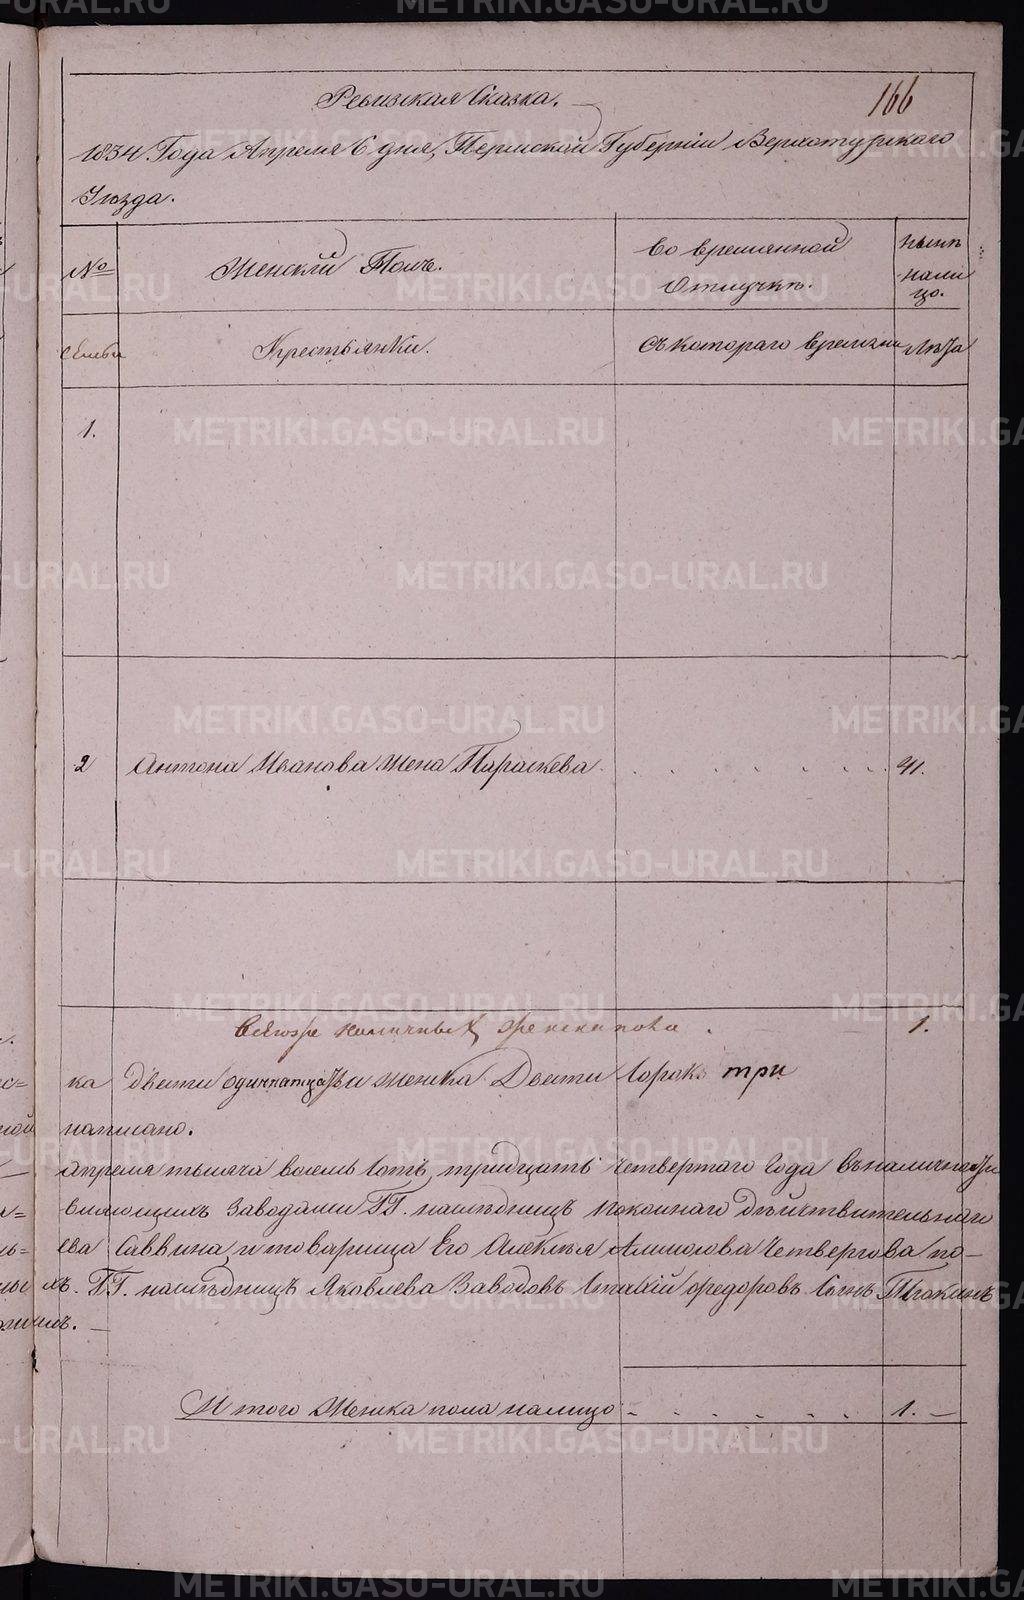 Ревизская Сказка.
166
1834 Года Апреля 6 дня, Пермской Губернии Верхотурского
Уезда.
№
Женский Полъ.
Во временной
Отлучкѣ.
нынѣ
нали
цо.
семьи
Крестьянки.
Съ котораго времени
Лѣта
1.
2 Антона Иванова жена Параскева. 41.
наличных женска пола . 1.
ка двести одиннатцать и женска Двести Сорок три
написано.
апреля тысяча восемь Сотъ тридцать четвертаго Года въ наличнос
Заводами ГГ. наслѣдницъ покоинаго дѣйствительнаго
ева Саввина и товарища Его Алексѣя Четвергова по-
хъ. ГГ. наслѣдницъ Яковлева Заводовъ Федоровъ Сынъ
илъ.
Итого женска пола налицо 1. —
METRIKI.GASO-URAL.RU